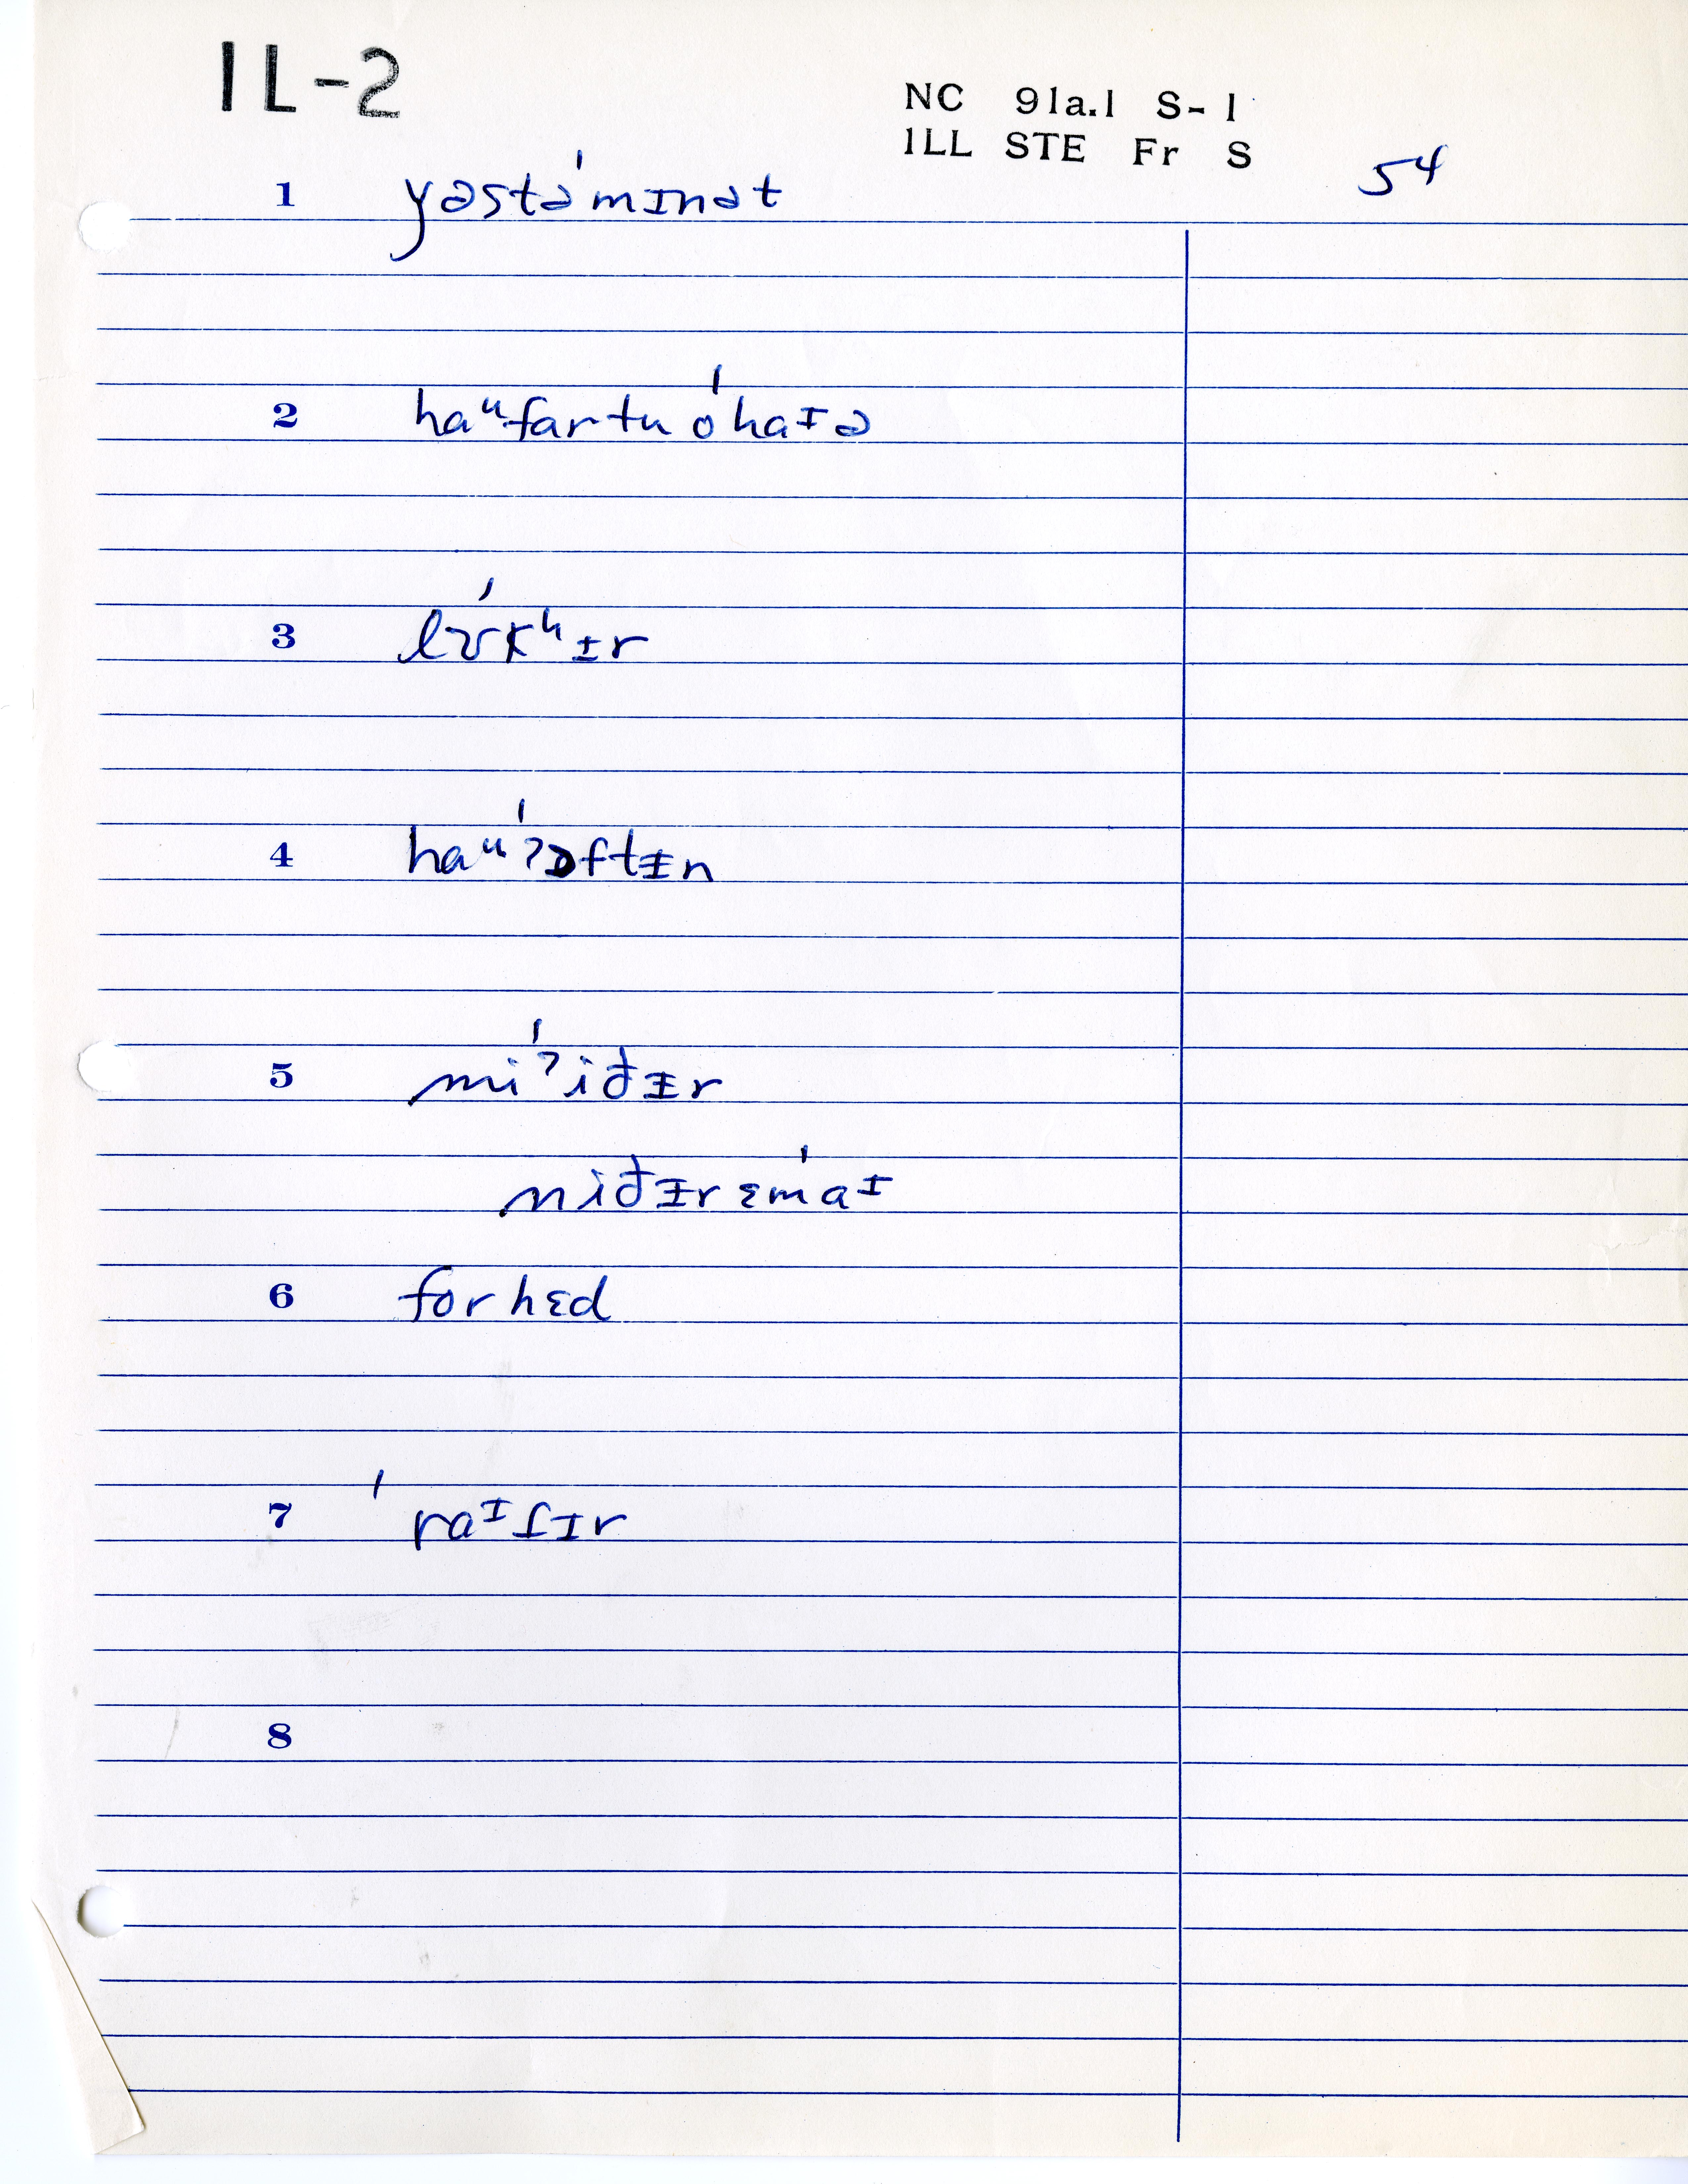 IL-2
NC 91a.1 S-1
ILL STE Fr S
54
1 yəstə́mɪnət
2 haᵘfartu óhaɪə
3 lʊ́kʰɪr
4 haᵘ́ʔɔftɪn
5 mi ́ˀiđɪr
niđɪrɛḿaᶦ
6 forhɛd
7 ́raᶦʃɪr
8